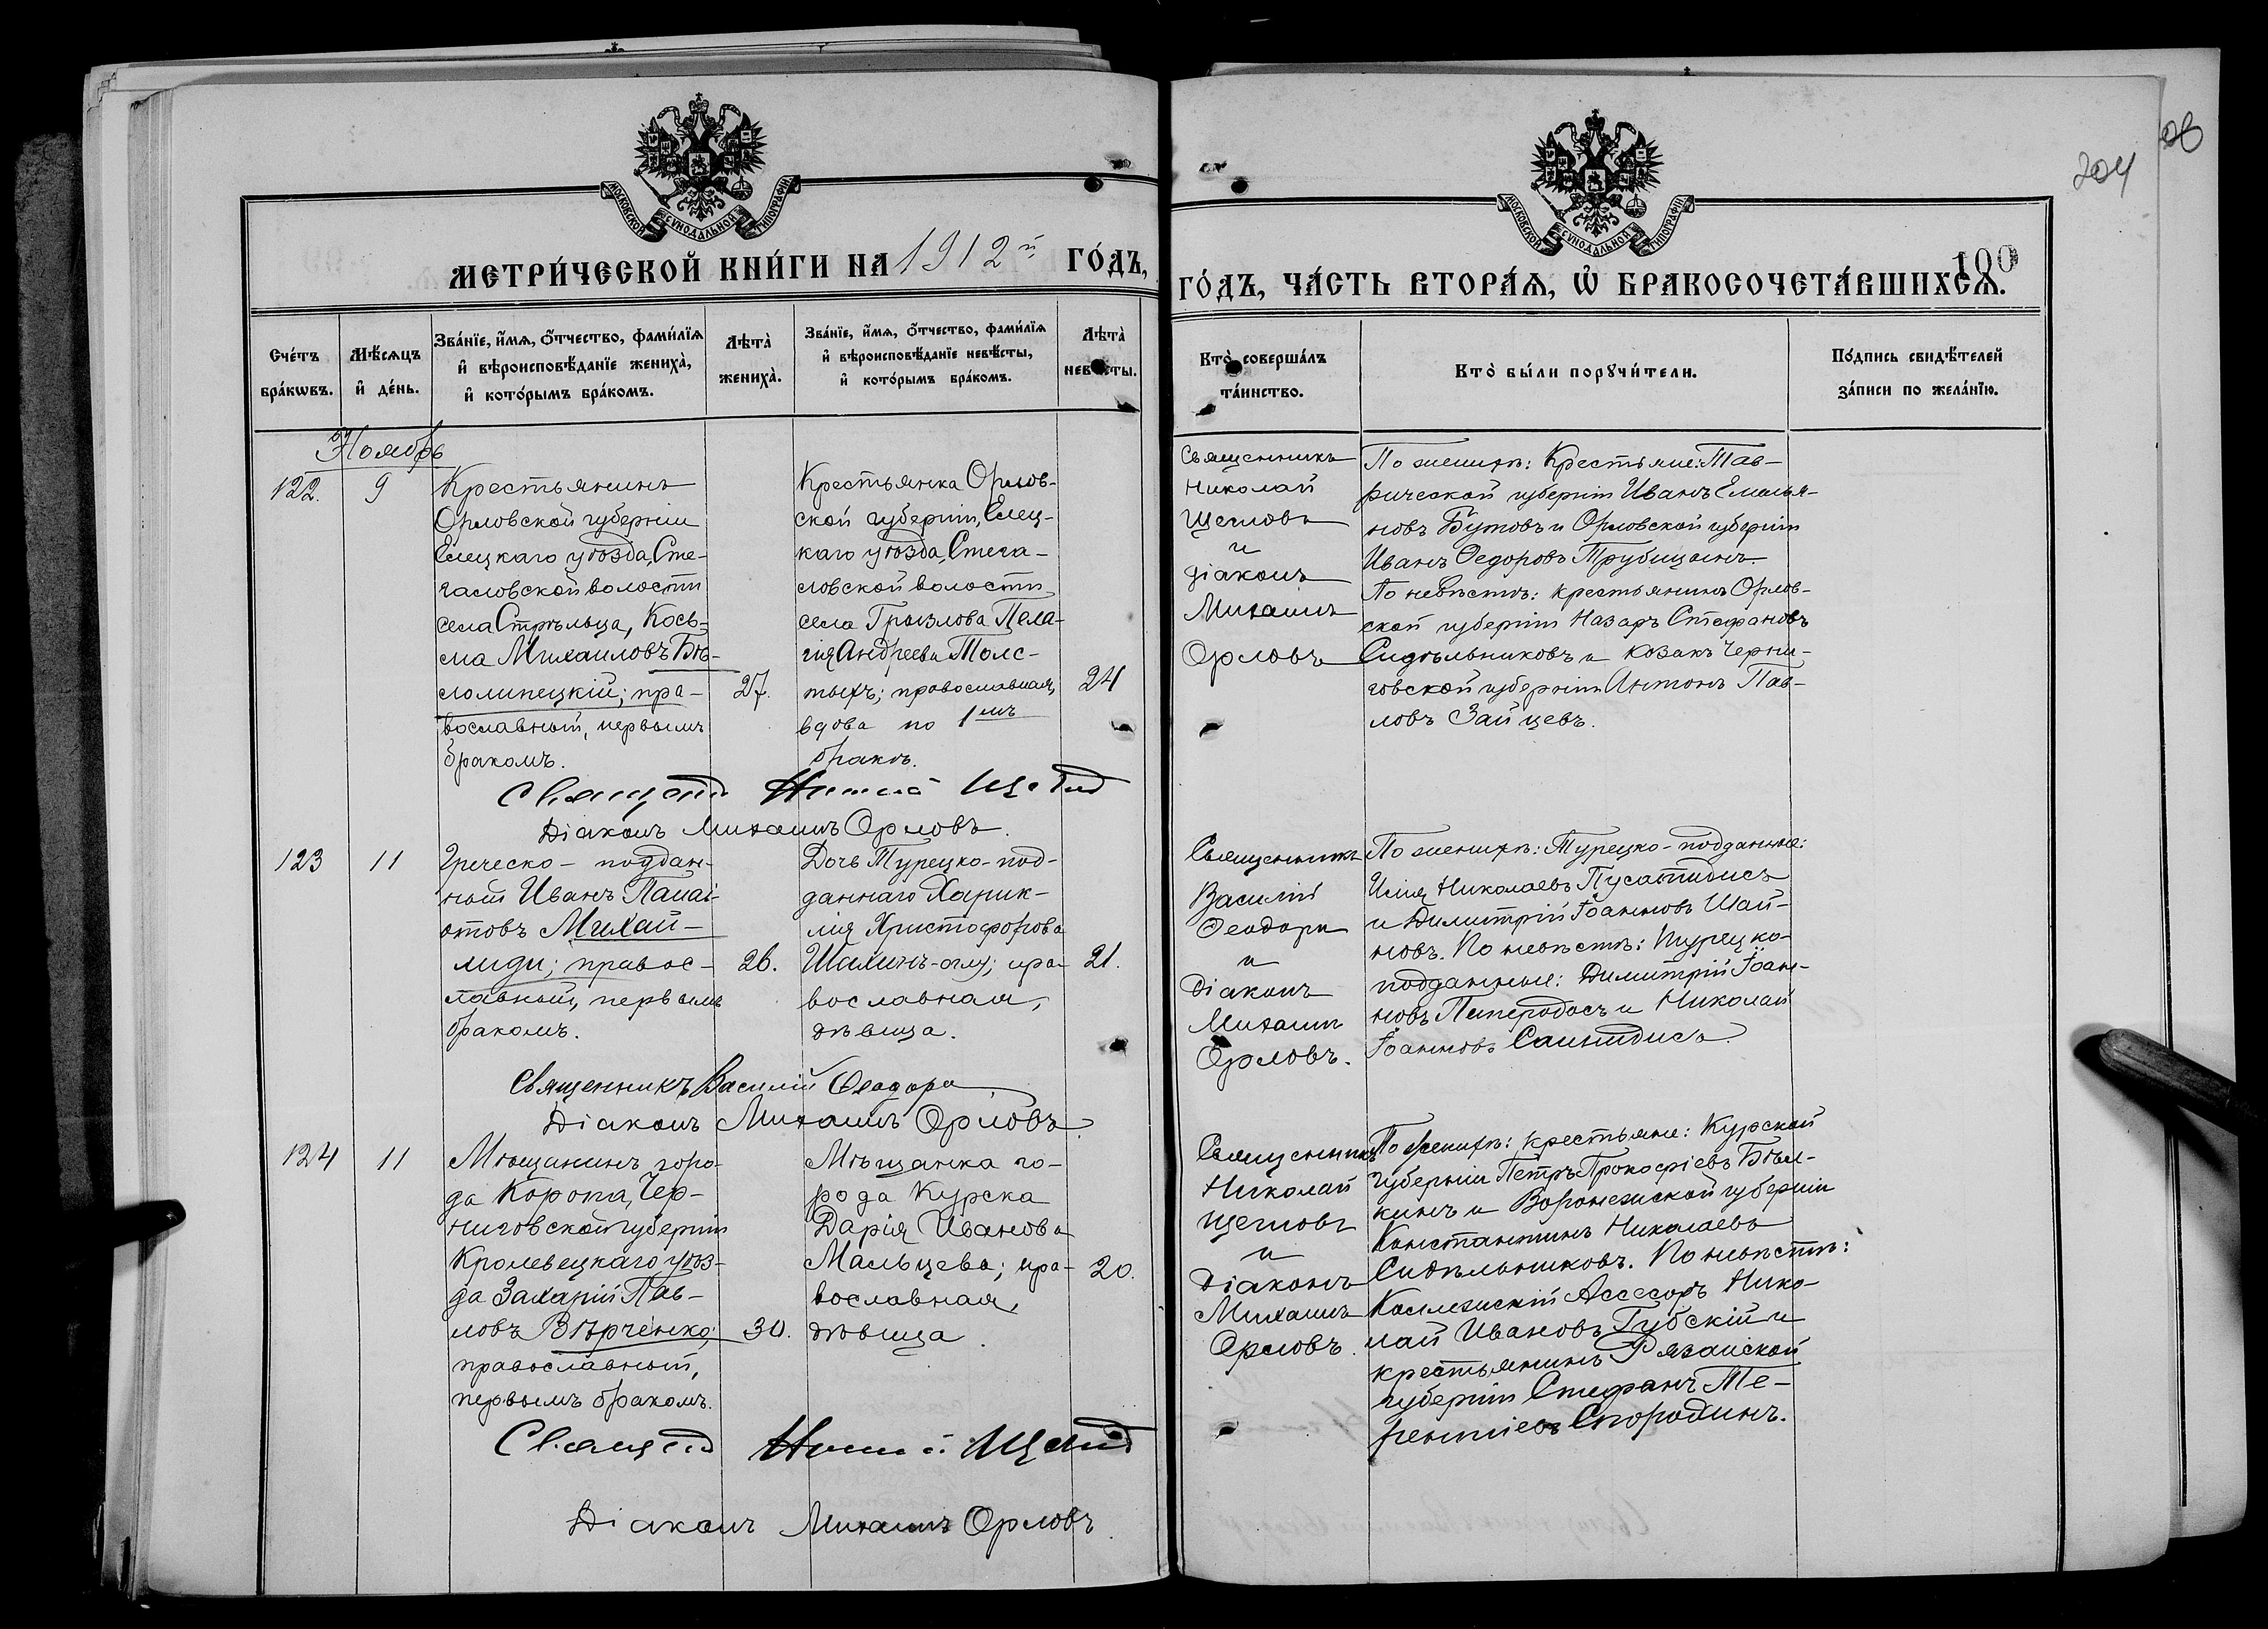 МОСКОВСКОЙ СѴНОДАЛЬНОЙ ТИПОГРАФІИ
МЕТРИ́ЧЕСКОЙ КНИ́ГИ НА 1912й ГО́ДЪ,
Сче́тъ бра́кѡвъ.
Мѣ́сяцъ и҆ де́нь.
Зва́нїе, и҆́мя, ѻ҆́тчество, фами́лїя
и҆ вѣроисповѣ́данїе жениха̀,
и҆ кото́рымъ бра́комъ.
Лѣта̀ жениха̀.
Зва́нїе, и҆́мя, ѻ҆́тчество, фами́лїя
и҆ вѣроисповѣ́данїе невѣ́сты,
и҆ кото́рымъ бра́комъ.
Лѣта̀ невѣ́сты.
Ноябрь
122.
9
Крестьянинъ
Орловской губерніи
Елецкаго уѣзда, Сте-
галовской волости
села Стрѣльца, Кось-
ма Михаиловъ Бѣ-
лолипецкій; пра-
вославный, первымъ
бракомъ.
27.
Крестьянка Орлов-
ской губерніи, Елец-
каго уѣзда, Стега-
ловской волости
села Грызлова Пела-
гія Андреева Толс-
тыхъ; православная,
вдова по 1мъ
бракѣ.
24
Діаконъ Михаилъ Орловъ.
123
11
Греческо-поддан-
ный Иванъ Панаі-
отовъ Михай-
лиди; правос-
лавный, первымъ
бракомъ.
26.
Дочь Турецко-под-
даннаго Харик-
лія Христофорова
Шахинъ-оглу; пра-
вославная,
дѣвица.
21.
Священникъ Василій Ѳеодори
Діаконъ Михаилъ Орловъ.
124
11
Мѣщанинъ горо-
да Коропа, Чер-
ниговской губерніи
Кролевецкаго уѣз-
да Захарій Пав-
ловъ Вѣрченко;
православный,
первымъ бракомъ.
30.
Мѣщанка го-
рода Курска
Дарія Иванова
Мальцева; пра-
вославная,
дѣвица.
20.
Діаконъ Михаилъ Орловъ
204
МОСКОВСКОЙ СѴНОДАЛЬНОЙ ТИПОГРАФІИ
100
ГО́ДЪ, ЧА́СТЬ ВТОРА́Я, Ѡ҆ БРАКОСОЧЕТА́ВШИХСЯ.
Кто̀ соверша́лъ та́инство.
Кто̀ бы́ли порꙋчи́тели.
По́дпись свидѣ́телей за́писи по жела́нїю.
Священникъ
Николай
Щегловъ
и
діаконъ
Михаилъ
Орловъ
По женихѣ: Крестьяне: Тав-
рической губерніи Иванъ Емелья-
новъ Бутовъ и Орловской губерніи
Иванъ Ѳедоровъ Трубицынъ.
По невѣстѣ: крестьянинъ Орлов-
ской губерніи Назаръ Стефановъ
Сидѣльниковъ и козакъ Черни-
говской губерніи Антонъ Пав-
ловъ Зайцевъ.
Священникъ
Василій
Ѳеодори
и
Діаконъ
Михаилъ
Орловъ.
По женихѣ: Турецко-подданные:
Илія Николаевъ Пусатидисъ
и Димитрій Іоанновъ Шай-
новъ. По невѣстѣ: турецко-
подданные: Димитрій Іоан-
новъ Пиперидосъ и Николай
Іоанновъ
Священникъ
Николай
Щегловъ
и
Діаконъ
Михаилъ
Орловъ.
По женихѣ: крестьяне: Курской
губерніи Петръ Прокофіевъ Бѣл-
кинъ и Воронежской губерніи
Константинъ Николаевъ
Сидѣльниковъ. По невѣстѣ:
Коллежскій Ассесоръ Нико-
лай Ивановъ Губскій и
крестьянинъ Рязанской
губерніи Стефанъ Те-
рентіевъ Спородинъ.